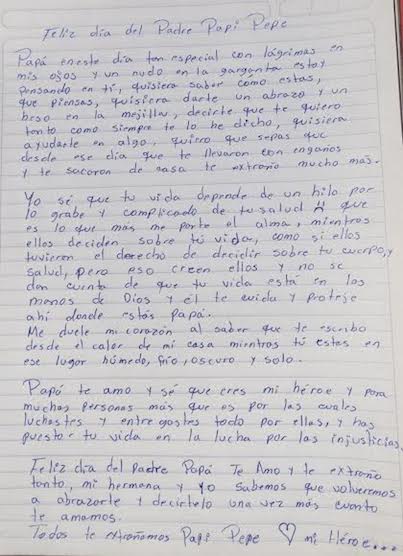 Feliz día del Padre Papi Pepe
Papá en este día tan especial con lágrimas en
mis ojos y un nudo en la garganta estoy
pensando en ti, quisiera saber como estas,
que piensas, quisiera darte un abrazo y un
beso en la mejilla, decirte que te quiero
tanto como siempre te lo he dicho, quisiera
ayudarte en algo, quiero que sepas que
desde ese día que te llevaron con engaños
y te sacaron de casa te extraño mucho más.
Yo sé que tu vida depende de un hilo por
lo grabe y complicado de tu salud :( que
es lo que más me parte el alma, mientras
ellos deciden sobre tú vida, como si ellos
tuvieren el derecho de decidir sobre tu cuerpo, y
salud, pero eso creen ellos y no se
dan cuenta de que tu vida está en las
manos de Dios y él te cuida y proteje
ahí donde estás Papá.
Me duele mi corazón al saber que te escribo
desde el calor de mi casa mientras tú estas en
ese lugar húmedo, frío, oscuro y solo.
Papá te amo y sé que eres mi héroe y para
muchas personas más que es por las cuales
luchastes y entregastes todo por ellas, y has
puesto tu vida en la lucha por las injusticias.
Feliz día del Padre Papá Te Amo y te extraño
tonto, mi hermana y yo sabemos que volveremos
a abrazarte y decírtelo una vez más cuanto
te amamos.
Todos te extrañamos Papi Pepe ♡ mi Héroe...